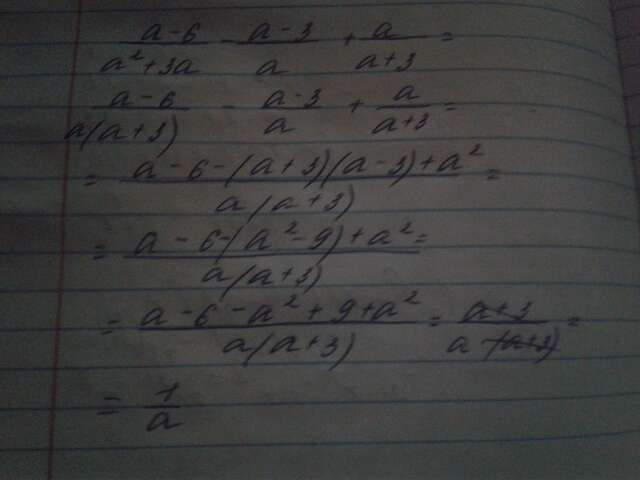 (a-6)/(a²+3a) - (a-3)/a + a/(a+3) =
(a-6)/(a(a+3)) - (a-3)/a + a/(a+3) =
= (a-6-(a+3)(a-3)+a²)/(a(a+3)) =
= (a-6-(a²-9)+a²)/(a(a+3)) =
= (a-6-a²+9+a²)/(a(a+3)) = (a+3)/(a·(a+3)) =
= 1/a